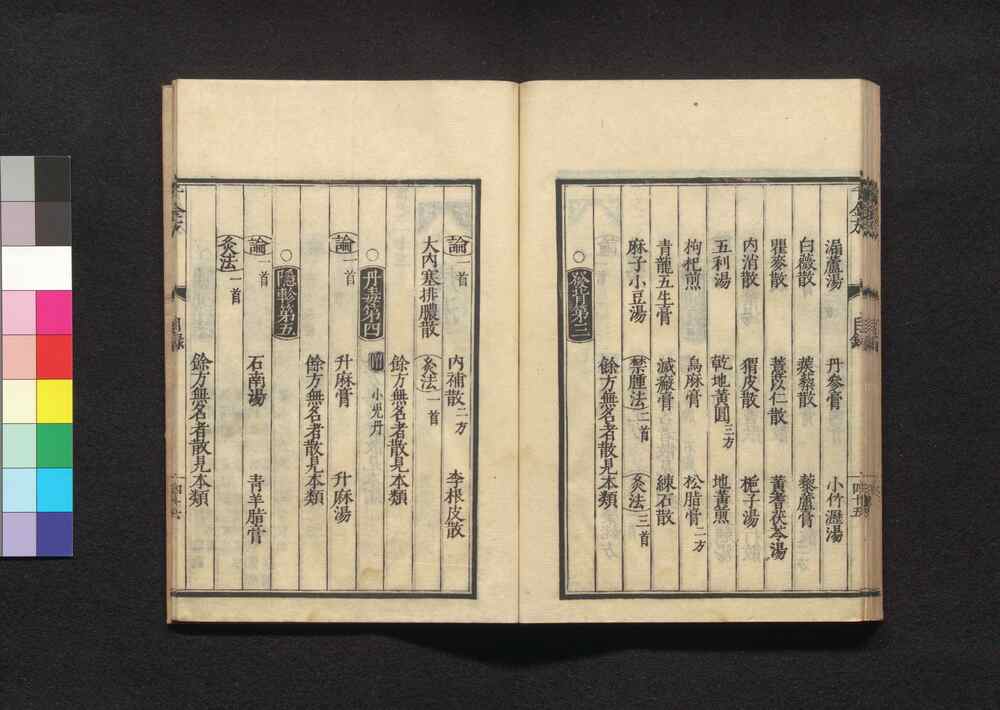 漏蘆湯 丹參膏 小竹瀝湯
白薇散 蒺䔧散 藜蘆膏
瞿麥散 薏苡仁散 黃耆茯苓湯
內消散 猬皮散 梔子湯
五利湯 乾地黃圓三方 地黃煎
枸杞煎 烏麻膏 松脂膏二方
青龍五生膏 滅瘢膏 練石散
麻子小豆湯 禁腫法二首 灸法三首
餘方無名者散見本類
○發背第三
論一首 內補散二方 李根皮散
大內塞排膿散 灸法一首
餘方無名者散見本類
○丹毒第四 附小兒丹
論一首 升麻膏 升麻湯
餘方無名者散見本類
○隱軫第五
論一首 石南湯 青羊脂膏
灸法一首
餘方無名者散見本類
目錄
四十五
目錄